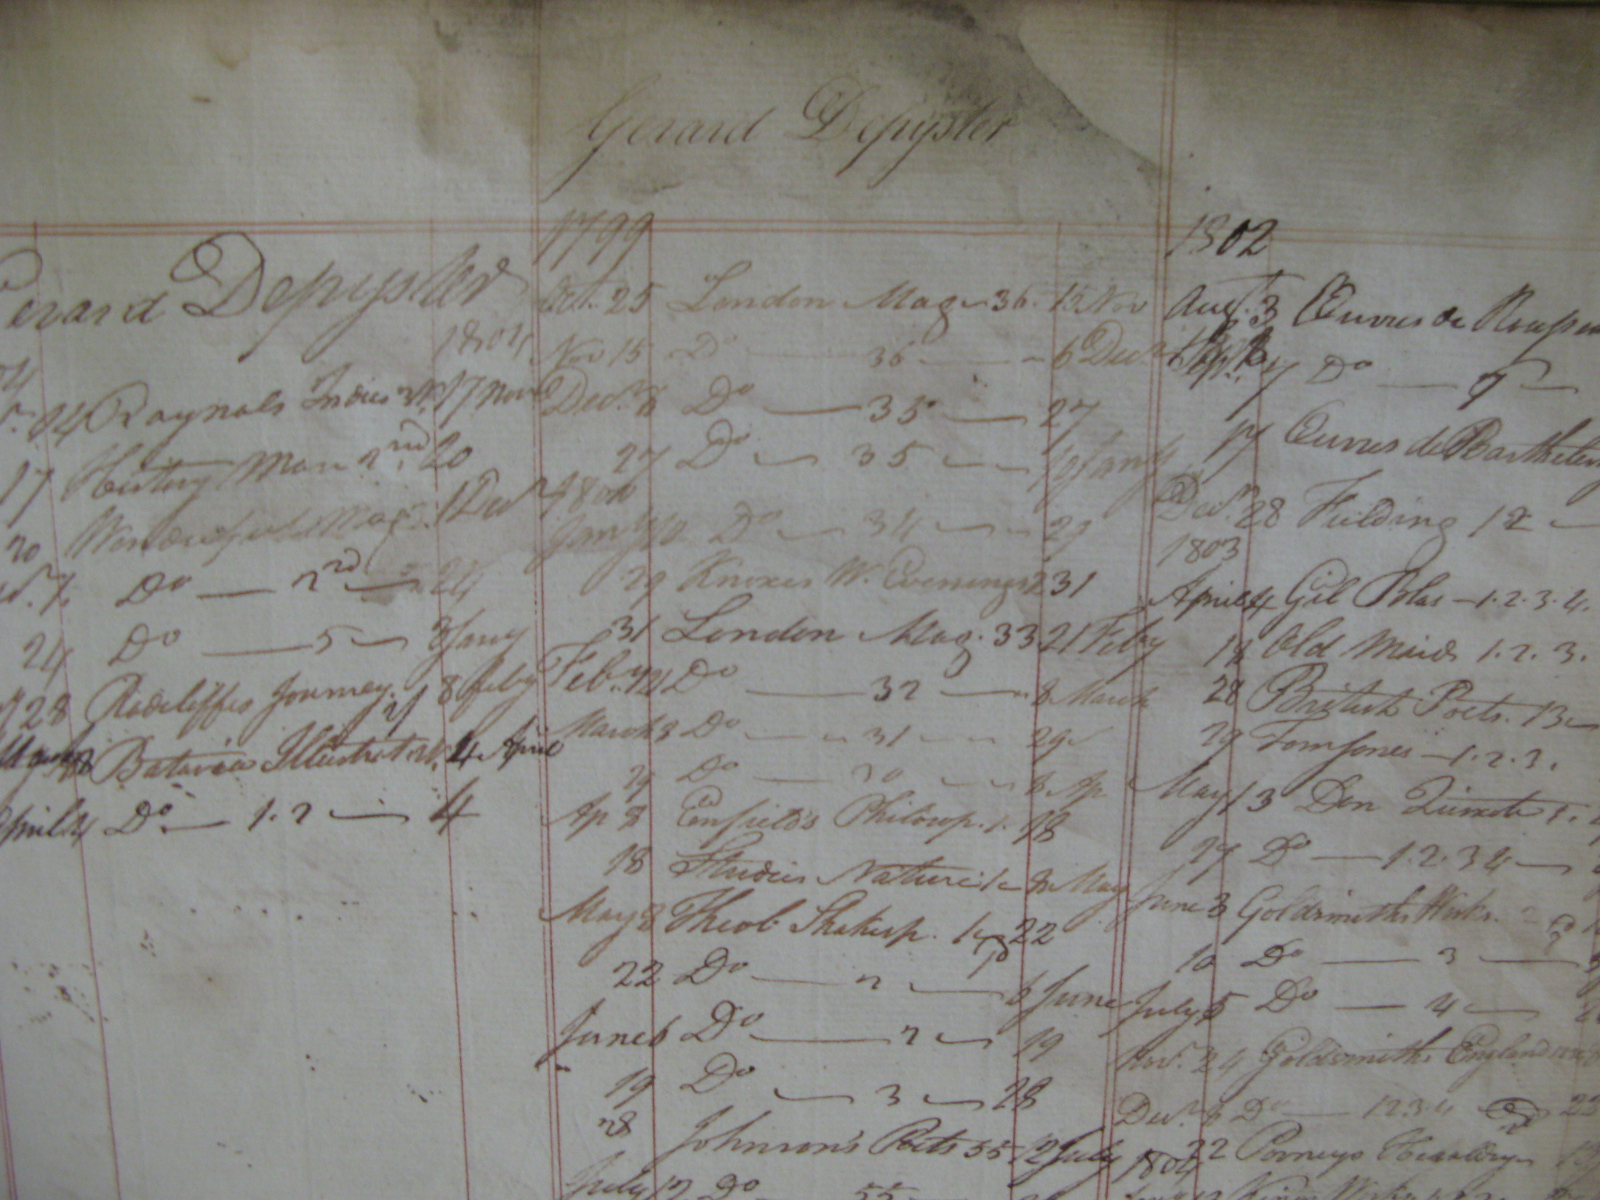 Gerard Depyster
Gerard Depyster
1804
14 Raynals Indies 17 Nov
17 History Man 2nd 20
20 Wonderful Mag 1 Decr
Do — 2nd — 24
24 Do — 5 — 3 Jany
28 Radcliffes Journey 8 Feby
Batavia Illustrat 4 April
April 4 Do — 1.2 — 4
1799
Oct. 25 London Mag 36. 15 Nov
Nov 15 Do — 36 — 6 Decr
Decr 6 Do — 35 — 27
27 Do — 35 — 10 Jany
1800
Jany 10 Do — 34 — 29
29 Knoxes W. Evenings 2 31
31 London Mag. 33 21 Feby
Feby 21 Do — 32 — 8 March
March 8 Do — 31 — 29
29 Do — 30 — 8 Ap
Ap 8 Enfield's Philosop. 1. 18
18 Studies Nature 1 — 8 May
May 8 Theob Shakesp. 1 — 22
22 Do — 2 — 6 June
June 6 Do — 2 — 19
19 Do — 3 — 28
28 Johnson's Poets 55 12 July
July 12 Do — 55 —
1802
Augt. 3 Œuvres de
7 Do — 7 —
17 Œuvres de
Decr. 28 Fielding 12 —
1803
April 4 Gil Blas — 1.2.3.4.
18 Old Maids 1.2.3.
28 British Poets. 13 —
29 Tom Jones — 1.2.3.
May 13 Don Quixote 1.
27 Do — 1.2.3 4 —
June 8 Goldsmiths Works. 2
10 Do — 3 —
July 5 Do — 4 —
Nov. 24 Goldsmiths England
Decr. 8 Do — 1234 22
1804 22 Porneys Heraldry